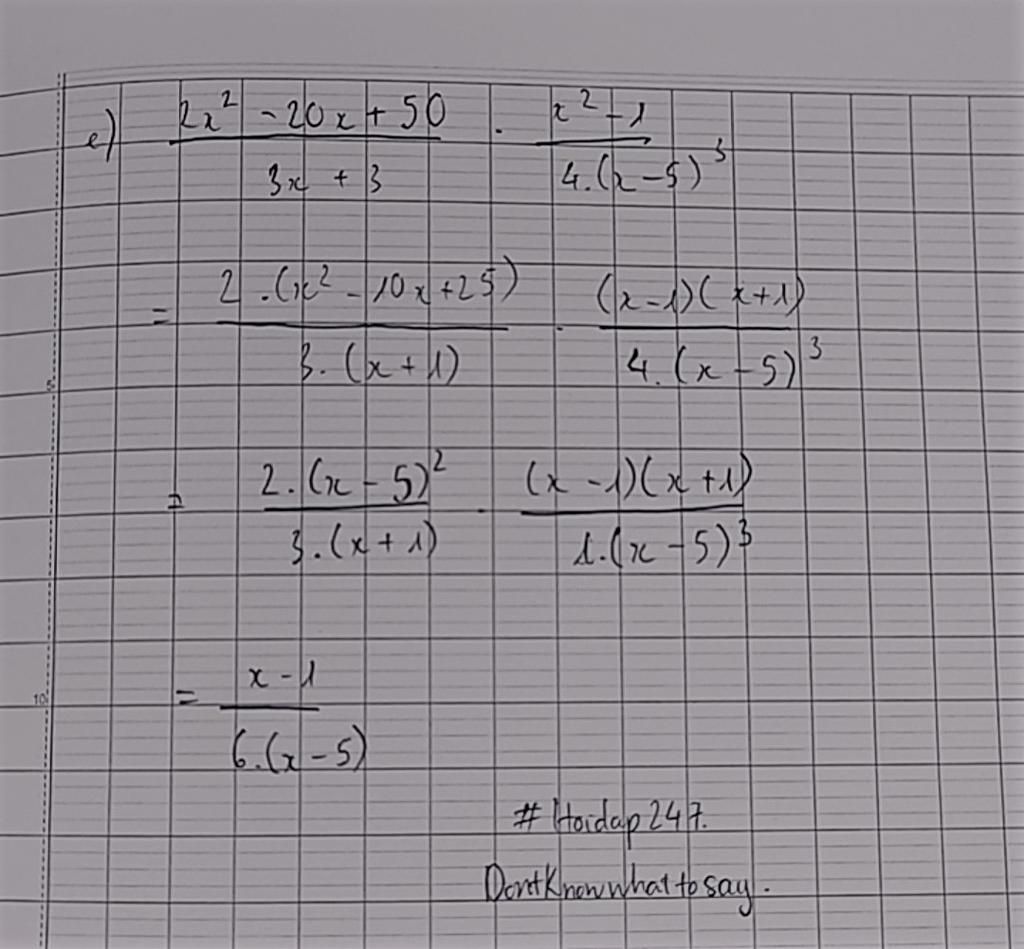 e) \frac{2x^2 - 20x + 50}{3x + 3} . \frac{x^2 - 1}{4.(x - 5)^3}
= \frac{2.(x^2 - 10x + 25)}{3.(x + 1)} . \frac{(x - 1)(x + 1)}{4.(x - 5)^3}
= \frac{2.(x - 5)^2}{3.(x + 1)} . \frac{(x - 1)(x + 1)}{1.(x - 5)^3}
= \frac{x - 1}{6.(x - 5)}
# Hoidap247.
Dont Know what to say.
5
10